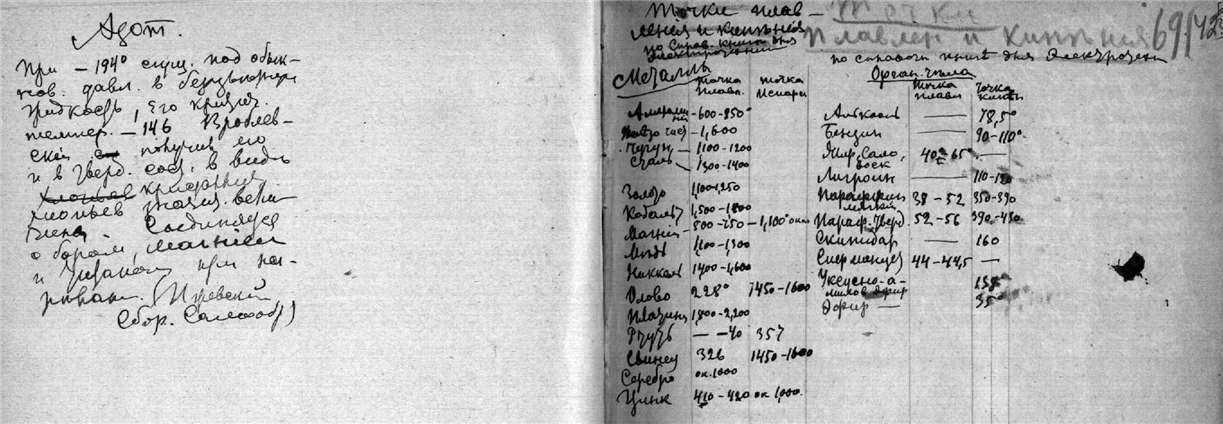 Азот.
При – 194° сгущ. под обык-
нов. давл. в безцветную
жидкость, его критич.
темпер. – 146 Вроблев-
ский получил его
и в тверд. сост. в виде
хлопьев кристаллич.
хлопьев значит. вели-
чины. Соединяется
с бором, магнием
и титаном при на-
гревании.
Сбор.
Точки плав-
ления и кипения
по Справ. книге для
Электротехн
Точки
плавлен и кипения 69/
по справочн книге для Электротехн
Металлы
точка плавл. точка испарен
Алюминий – 600-850°
– 1,600
Чугун – 1100-1200
Сталь – 1300-1400
Золото 1,100-1,250
Кобальт 1,500-1800
Магний – 500-750 – 1,100° око
Медь 1,100-1,300
Никкель 1400-1,600
Олово 228° 1450-1600
Платина 1,800-2,200
Ртуть – -40 357
Свинец 326 1450-1600
Серебро ок. 1000
Цинк 410-420 ок 1,000.
Орган. тела
точка плавл точка кипен
Алкоголь — 78,5°
Бензин — 90-110°
Жир, Сало, воск 40-65° —
Лигроин — 110-120
Парафин мягкий 38-52 350-390
Параф. тверд. 52-56 390-430
Скипидар — 160
Спермацет 44-44,5 —
Уксусно-а-
милов эфир 138°
Эфир — 35°